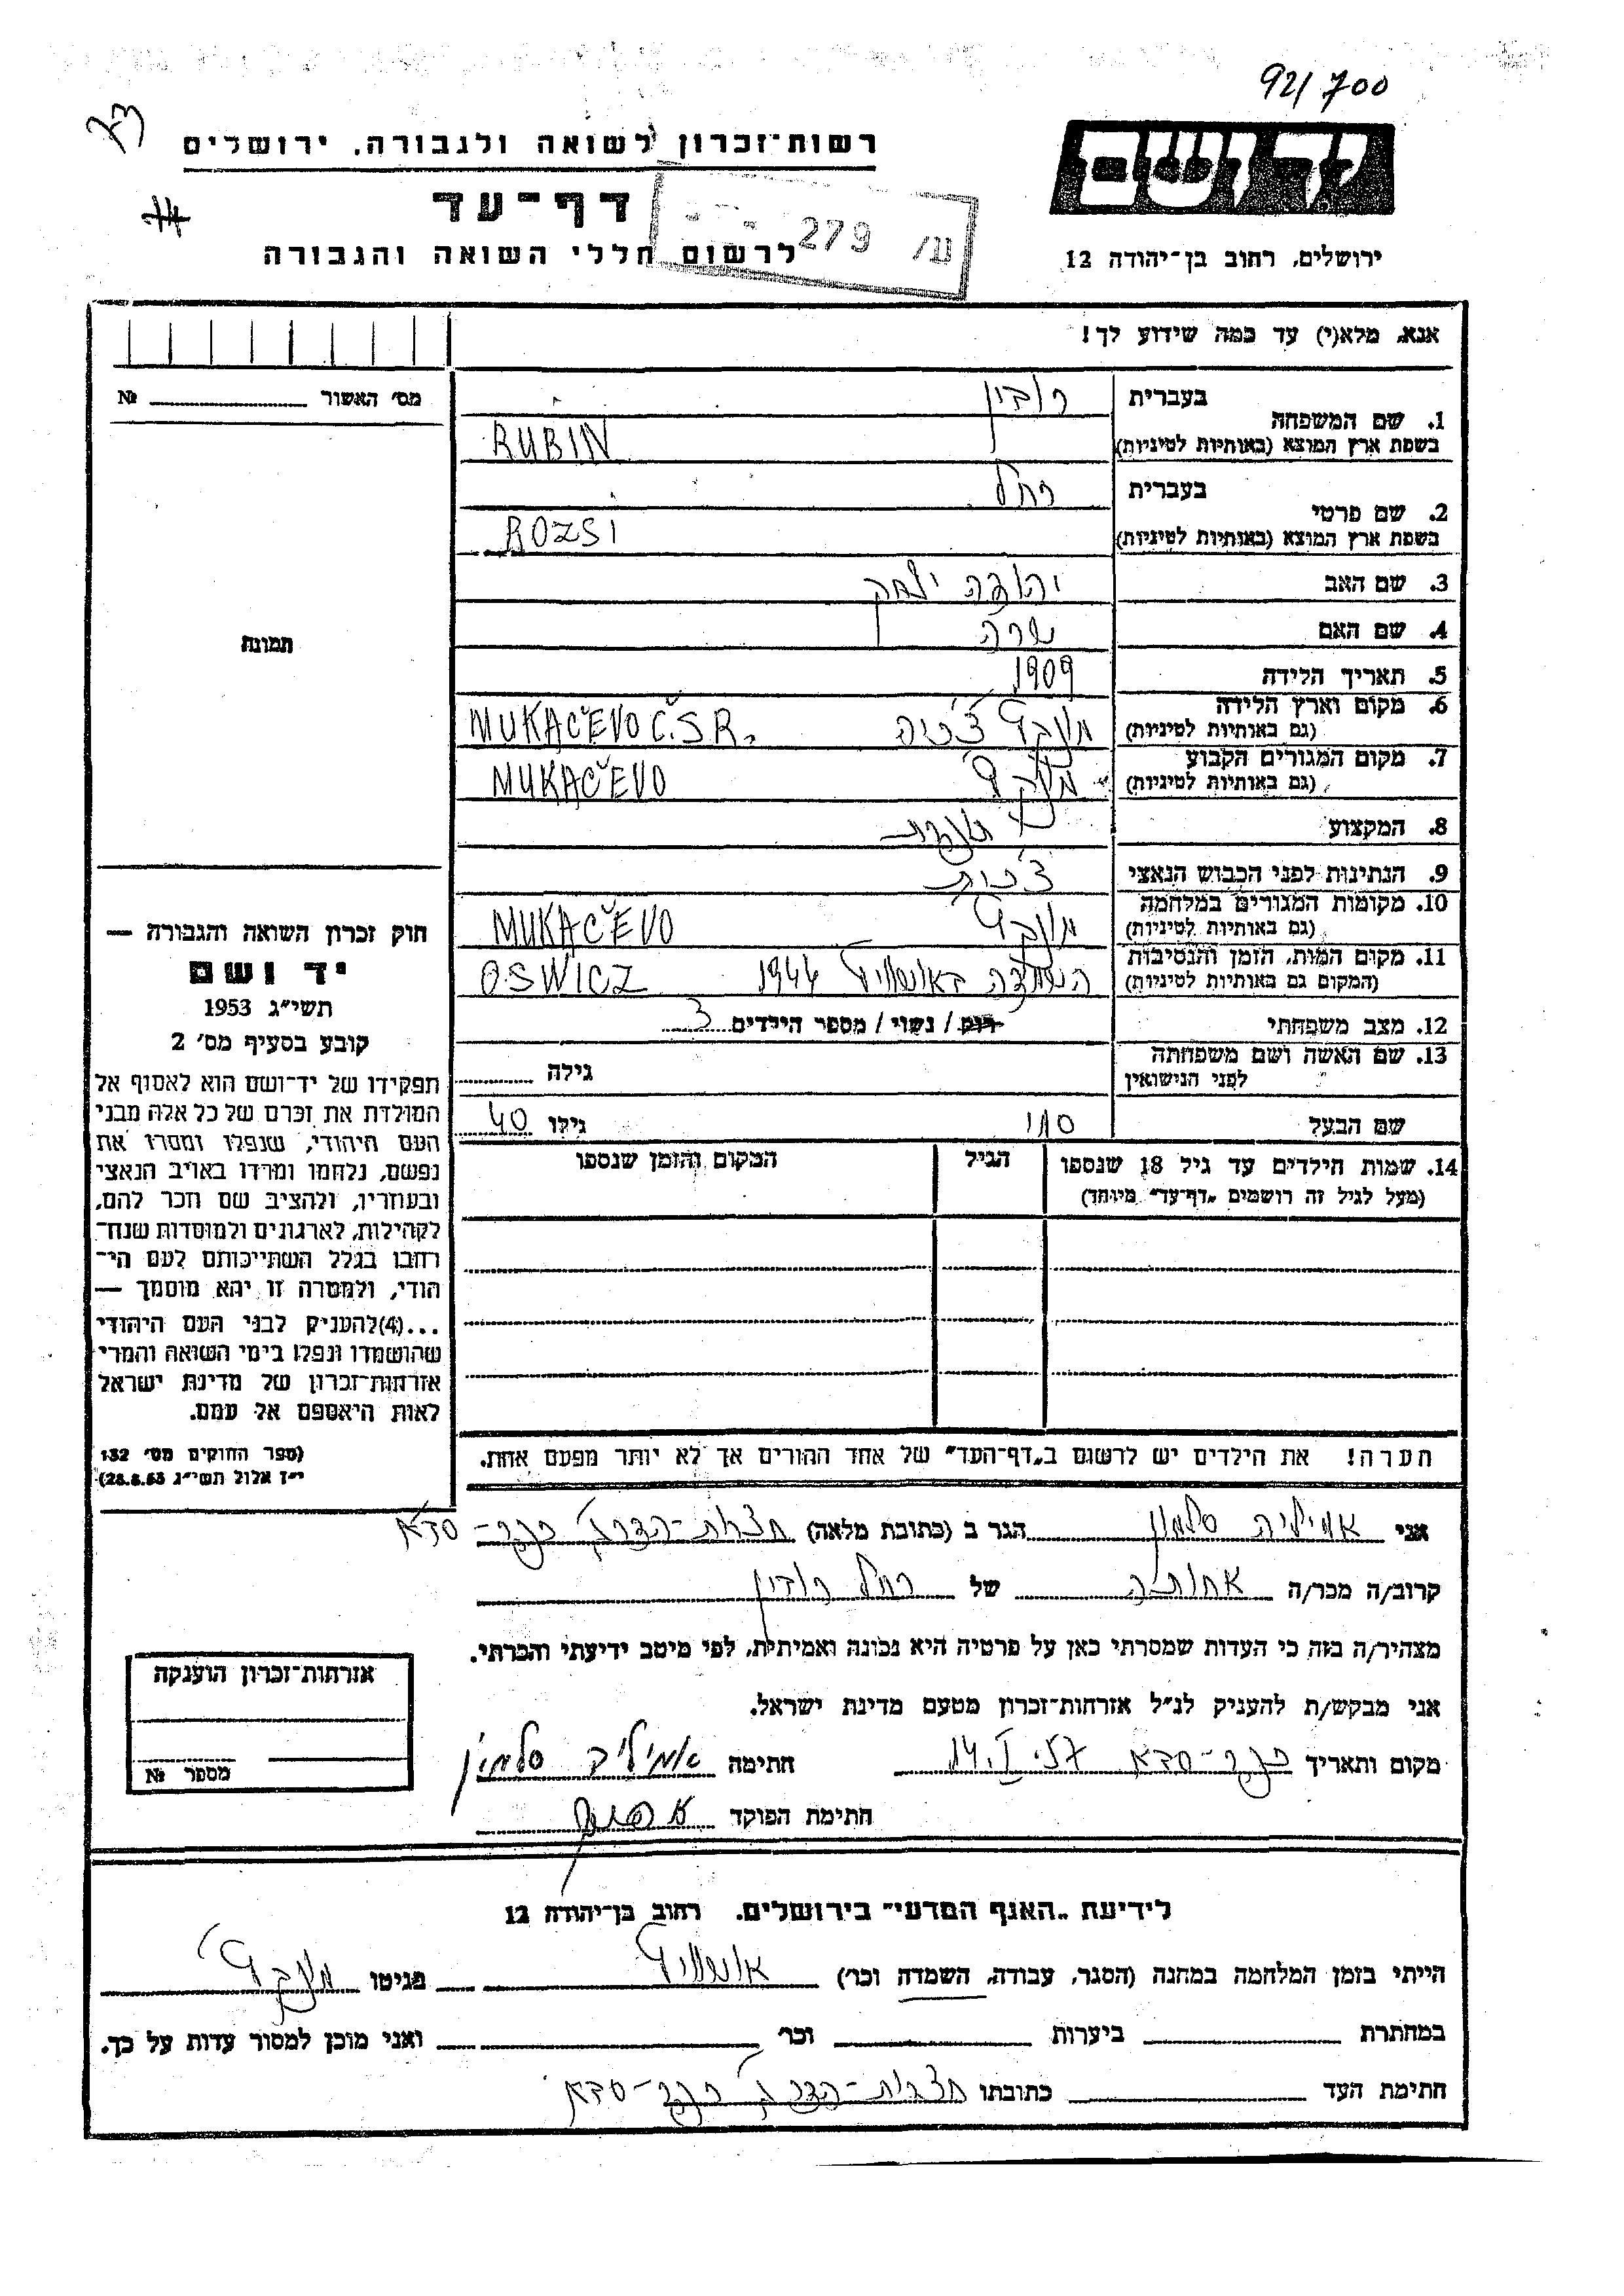 92/700
רשות־זכרון לשואה ולגבורה, ירושלים
יד ושם
דף־עד
279 /ע
לרשום חללי השואה והגבורה
ירושלים, רחוב בן־יהודה 12
אנא, מלא(י) עד כמה שידוע לך!
מס׳ האשור № 
1. שם המשפחה
בעברית רובין
בשפת ארץ המוצא (באותיות לטיניות) RUBIN
2. שם פרטי
בעברית רחל
בשפת ארץ המוצא (באותיות לטיניות) ROZSI
3. שם האב יהודה יצחק
4. שם האם שרה
5. תאריך הלידה 1909
6. מקום וארץ הלידה
(גם באותיות לטיניות) מונקץ׳ צ׳כיה MUKAČEVO Č.S.R.
7. מקום המגורים הקבוע
(גם באותיות לטיניות) מונקץ׳ MUKAČEVO
8. המקצוע
9. הנתינות לפני הכבוש הנאצי צ׳כית
10. מקומות המגורים במלחמה
(גם באותיות לטיניות) מונקץ׳ MUKAČEVO
11. מקום המות, הזמן והנסיבות
(המקום גם באותיות לטיניות) באושוויץ 1944 OSWICZ
12. מצב משפחתי רוק / נשוי / מספר הילדים 3
13. שם האשה ושם משפחתה
לפני הנישואין גילה
שם הבעל גילו 40
14. שמות הילדים עד גיל 18 שנספו
(מעל לגיל זה רושמים „דף־עד״ מיוחד)
הגיל
המקום והזמן שנספו
תמונה
חוק זכרון השואה והגבורה —
יד ושם
תשי״ג 1953
קובע בסעיף מס׳ 2
תפקידו של יד־ושם הוא לאסוף אל
המולדת את זכרם של כל אלה מבני
העם היהודי, שנפלו ומסרו את
נפשם, נלחמו ומרדו באויב הנאצי
ובעוזריו, ולהציב שם וזכר להם,
לקהילות, לארגונים ולמוסדות שנח־
רחבו בגלל השתייכותם לעם הי־
הודי, ולמטרה זו יהא מוסמך —
...(4) להעניק לבני העם היהודי
שהושמדו ונפלו בימי השואה והמרי
אזרחות־זכרון של מדינת ישראל
לאות היאספם אל עמם.
(ספר החוקים מס׳ 132
י״ז אלול תשי״ג 28.8.53)
הערה! את הילדים יש לרשום ב„דף־העד״ של אחד ההורים אך לא יותר מפעם אחת.
אני אמיליה סלמון הגר ב (כתובת מלאה)
קרוב/ה מכר/ה אחותה של רחל רובין
מצהיר/ה בזה כי העדות שמסרתי כאן על פרטיה היא נכונה ואמיתית, לפי מיטב ידיעתי והכרתי.
אני מבקש/ת להעניק לנ״ל אזרחות־זכרון מטעם מדינת ישראל.
מקום ותאריך 14.I.57 חתימה אמיליה סלמון
חתימת הפוקד
אזרחות־זכרון הוענקה
מספר №
לידיעת „האגף המדעי״ בירושלים. רחוב בן־יהודה 12
הייתי בזמן המלחמה במחנה (הסגר, עבודה, השמדה וכו׳) אושוויץ בגיטו מונקץ׳
במחתרת ביערות וכו׳ ואני מוכן למסור עדות על כך.
חתימת העד כתובתו